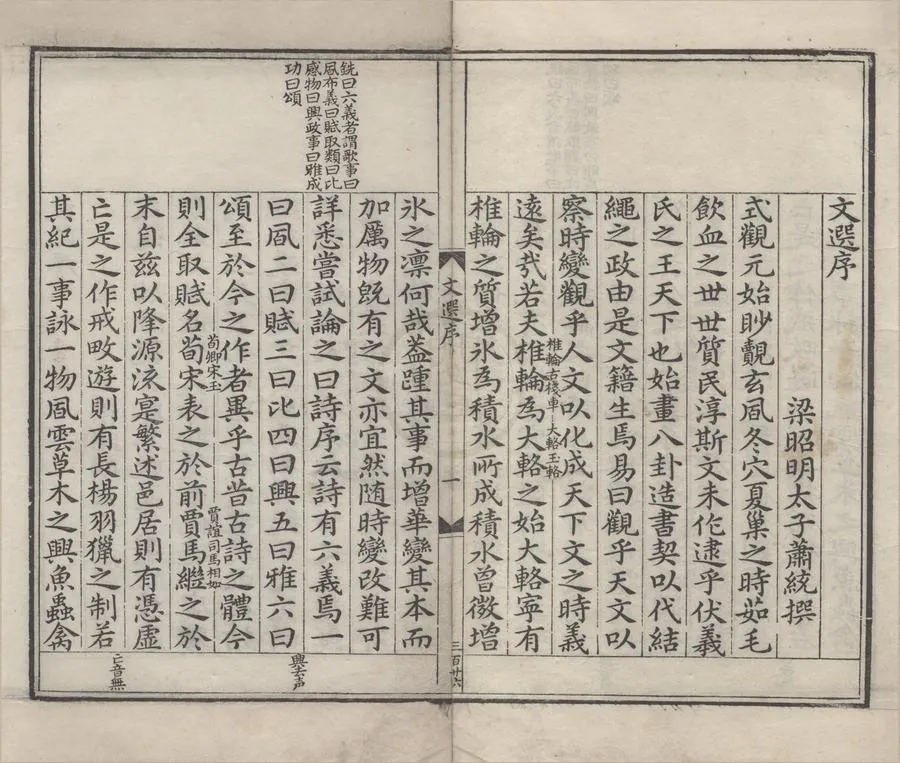 文選序
梁昭明太子蕭統撰
式觀元始眇覿玄風冬穴夏巢之時茹毛
飲血之世世質民淳斯文未作逮乎伏羲
氏之王天下也始畫八卦造書契以代結
繩之政由是文籍生焉易曰觀乎天文以
察時變觀乎人文以化成天下文之時義
遠矣哉若夫椎輪為大輅之始大輅寧有
椎輪古棧車大輅玉輅
椎輪之質增冰為積水所成積水曾微增
文選序
一
三百廿六
銑曰六義者謂歌事曰
風布義曰賦取類曰比
感物曰興政事曰雅成
功曰頌
冰之凜何哉蓋踵其事而增華變其本而
加厲物既有之文亦宜然隨時變改難可
詳悉嘗試論之曰詩序云詩有六義焉一
曰風二曰賦三曰比四曰興五曰雅六曰
頌至於今之作者異乎古昔古詩之體今
則全取賦名荀宋表之於前賈馬繼之於
荀卿宋玉
賈誼司馬相如
末自茲以降源流寔繁述邑居則有憑虛
亡是之作戒畋遊則有長楊羽獵之制若
其紀一事詠一物風雲草木之興魚蟲禽
興去声
亡音無